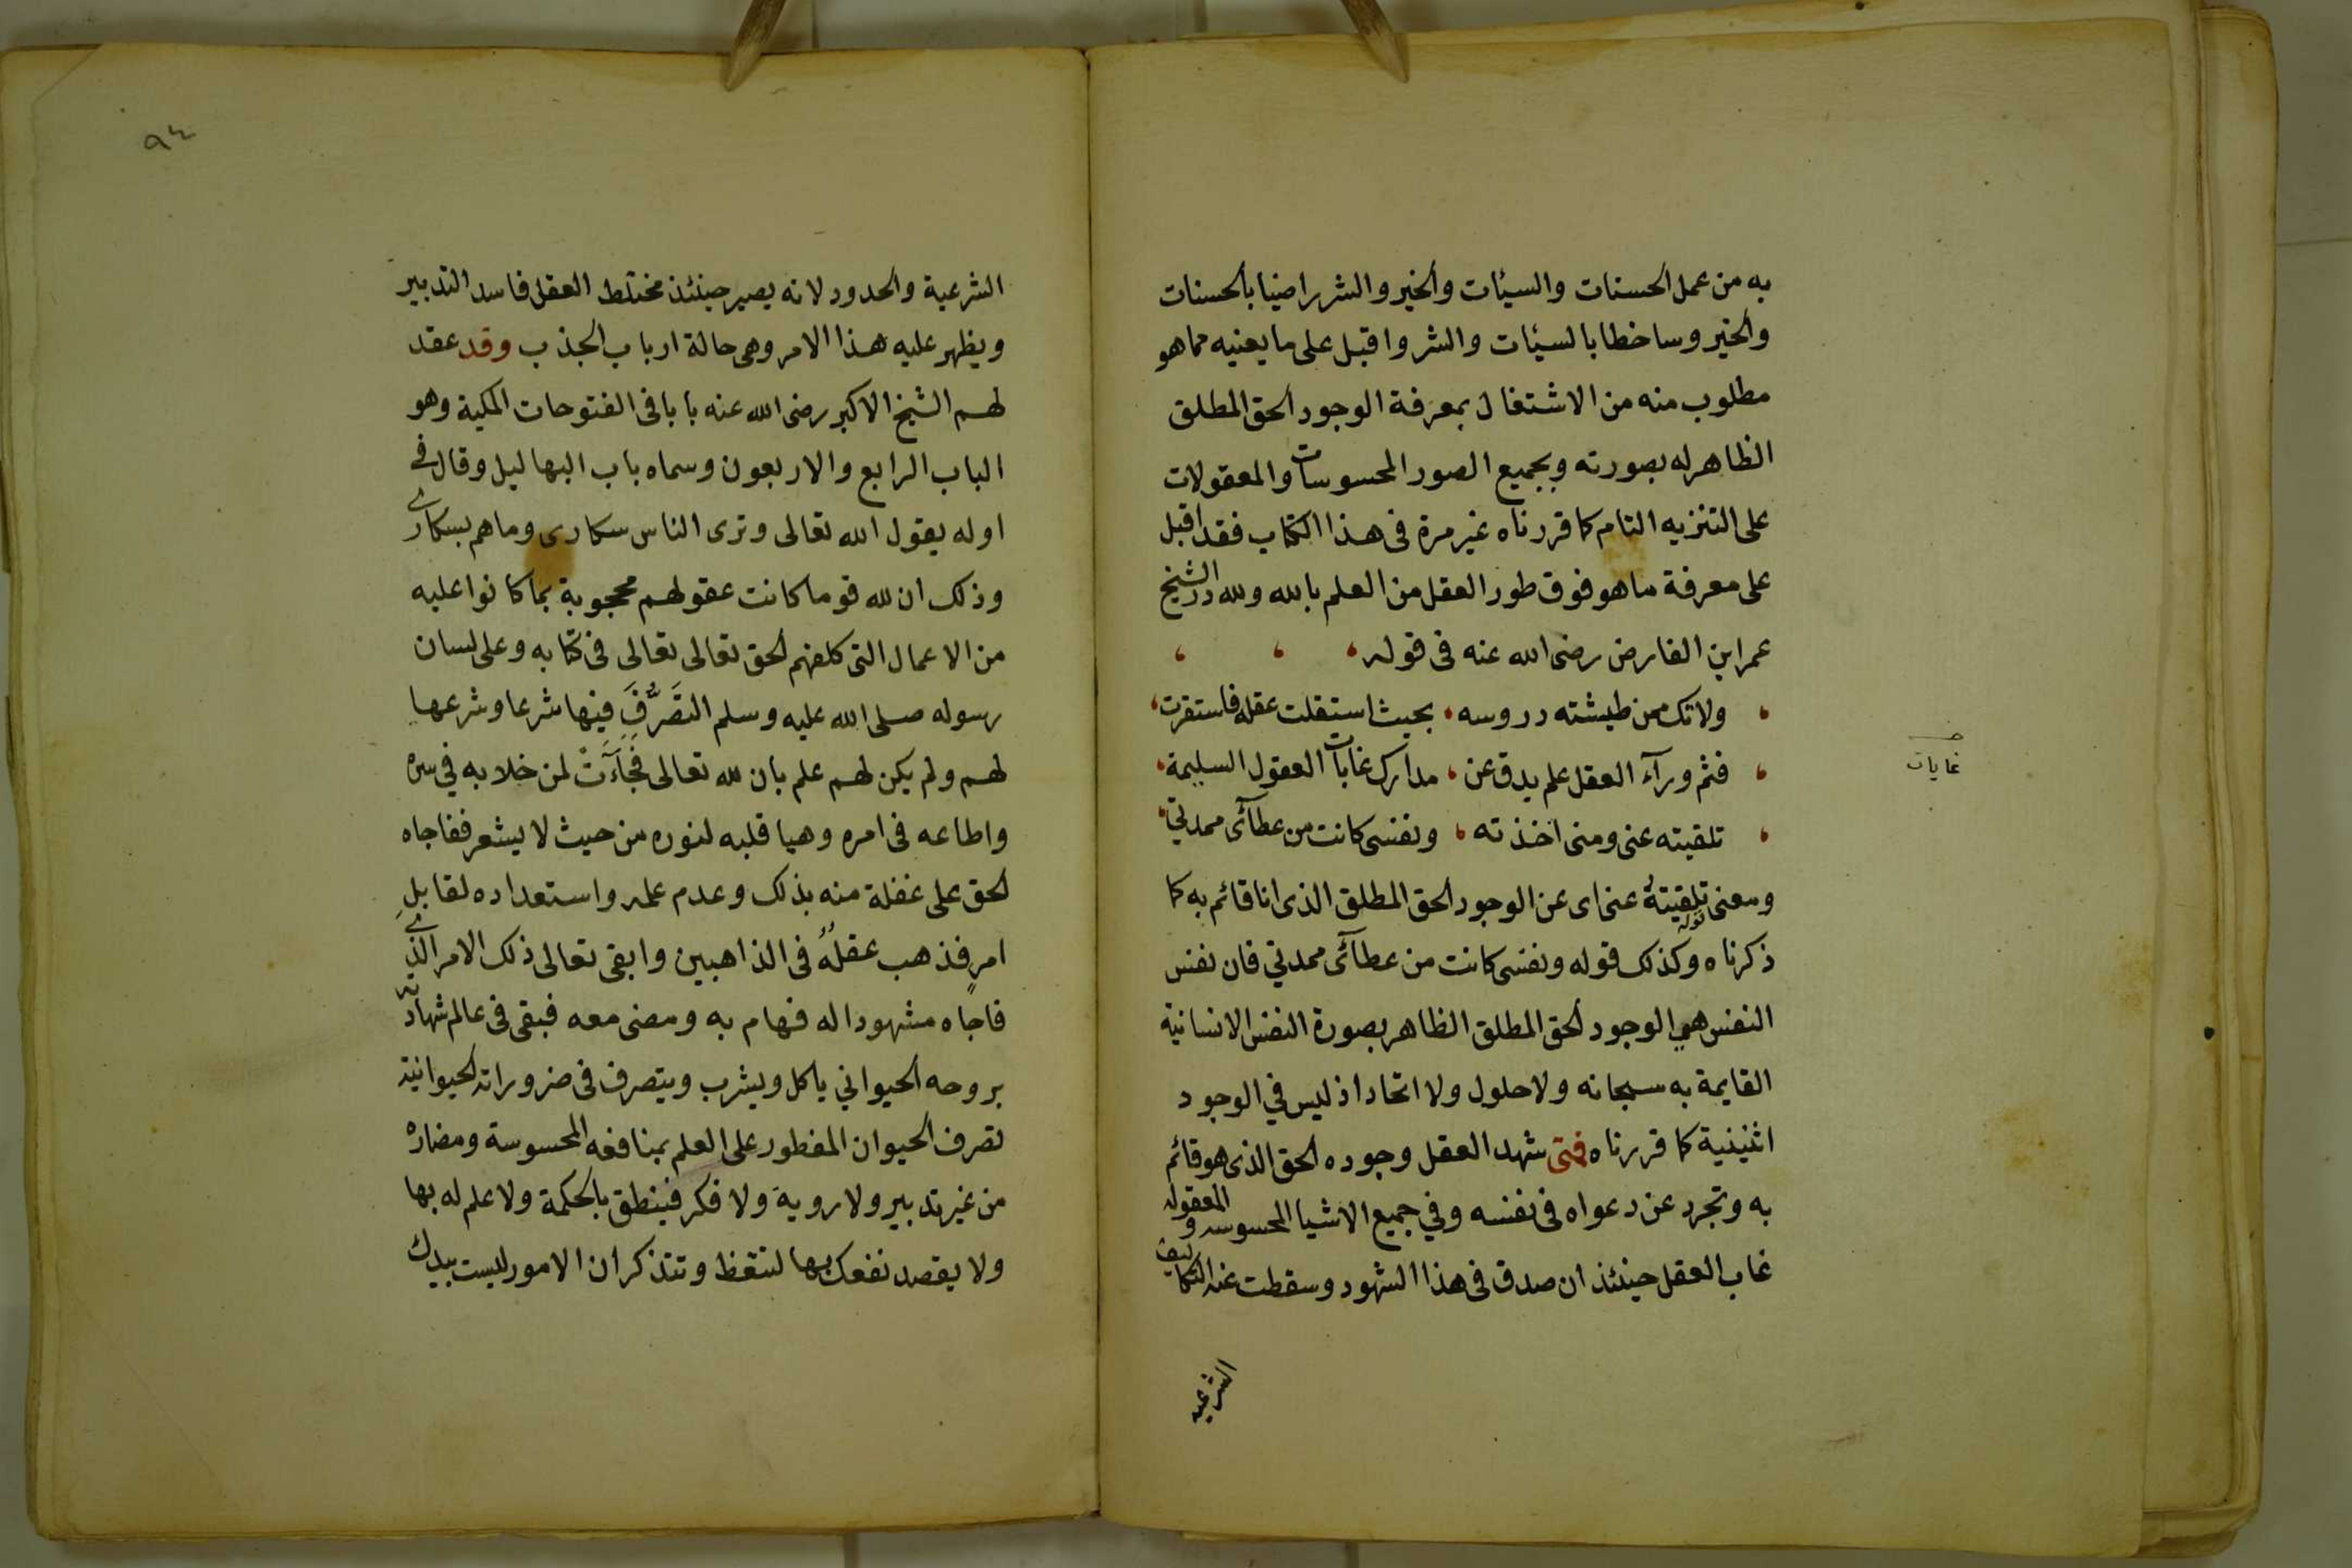 به من عمل الحسنات والسيئات والخير والشر راضيا بالحسنات
والخير وساخطا بالسيئات والشر واقبل على ما يعنيه مما هو
مطلوب منه من الاشتغال بمعرفة الوجود الحق المطلق
الظاهر له بصورته وبجميع الصور المحسوسات والمعقولات
على التنزيه التام كما قررناه غير مرة فى هذا الكتاب فقد اقبل
على معرفة ما هو فوق طور العقل من العلم بالله ولله در الشيخ
عمر ابن الفارض رضى الله عنه فى قوله
ولا تك ممن طيشته دروسه ، بحيث استقلت عقله فاستقرت
فثم ورآء العقل علم يدق عن ، مدارك غايات العقول السليمة
غايات
تلقيته عنى ومنى اخذته ، ونفسى كانت من عطآئى ممدتي
ومعنى تلقيتهُ عنى اى عن الوجود الحق المطلق الذى انا قائم به كما
ذكرناه وكذلك قوله ونفسى كانت من عطآئى ممدتي فان نفس
النفس هي الوجود الحق المطلق الظاهر بصورة النفس الانسانية
القايمة به سبحانه ولا حلول ولا اتحاد اذ ليس في الوجود
اثنينية كما قررناه فمتى شهد العقل وجوده الحق الذى هو قائم
به وتجرد عن دعواه فى نفسه وفي جميع الاشيا المحسوسه والمعقوله
غاب العقل حينئذ ان صدق فى هذا الشهود وسقطت عنه التكاليف
الشرعيه
٩٤
الشرعية والحدود لانه يصير حينئذ مختلط العقل فاسد التدبير
ويظهر عليه هذا الامر وهى حالة ارباب الجذب وقد عقد
لهم الشيخ الاكبر رضى الله عنه بابا فى الفتوحات المكية وهو
الباب الرابع والاربعون وسماه باب البهاليل وقال فى
اوله يقول الله تعالى وترى الناس سكارى وما هم بسكارى
وذلك ان لله قوما كانت عقولهم محجوبة بما كانوا عليه
من الاعمال التى كلفهم الحق تعالى تعالى فى كتابه وعلى لسان
رسوله صلى الله عليه وسلم التصَرُّفَ فيها شرعا وشرعها
لهم ولم يكن لهم علم بان لله تعالى فَجَآءَتٌ لمن خلا به في سره
واطاعه فى امره وهيا قلبه لنوره من حيث لا يشعر ففاجاه
الحق على غفلة منه بذلك وعدم علم واستعداده لقابل
امرٍ فذهب عقلُهُ فى الذاهبين وابقى تعالى ذلك الامر الذى
فاجاه مشهودا له فهام به ومضى معه فبقى فى عالم شهادته
بروحه الحيواني ياكل ويشرب ويتصرف فى ضروراته الحيوانية
تصرف الحيوان المفطور على العلم بمنافعه المحسوسة ومضاره
من غير تدبير ولا روية ولا فكر فينطق بالحكمة ولا علم له بها
ولا يقصد نفعك بها لتتعظ وتتذكر ان الامور ليست بيدك